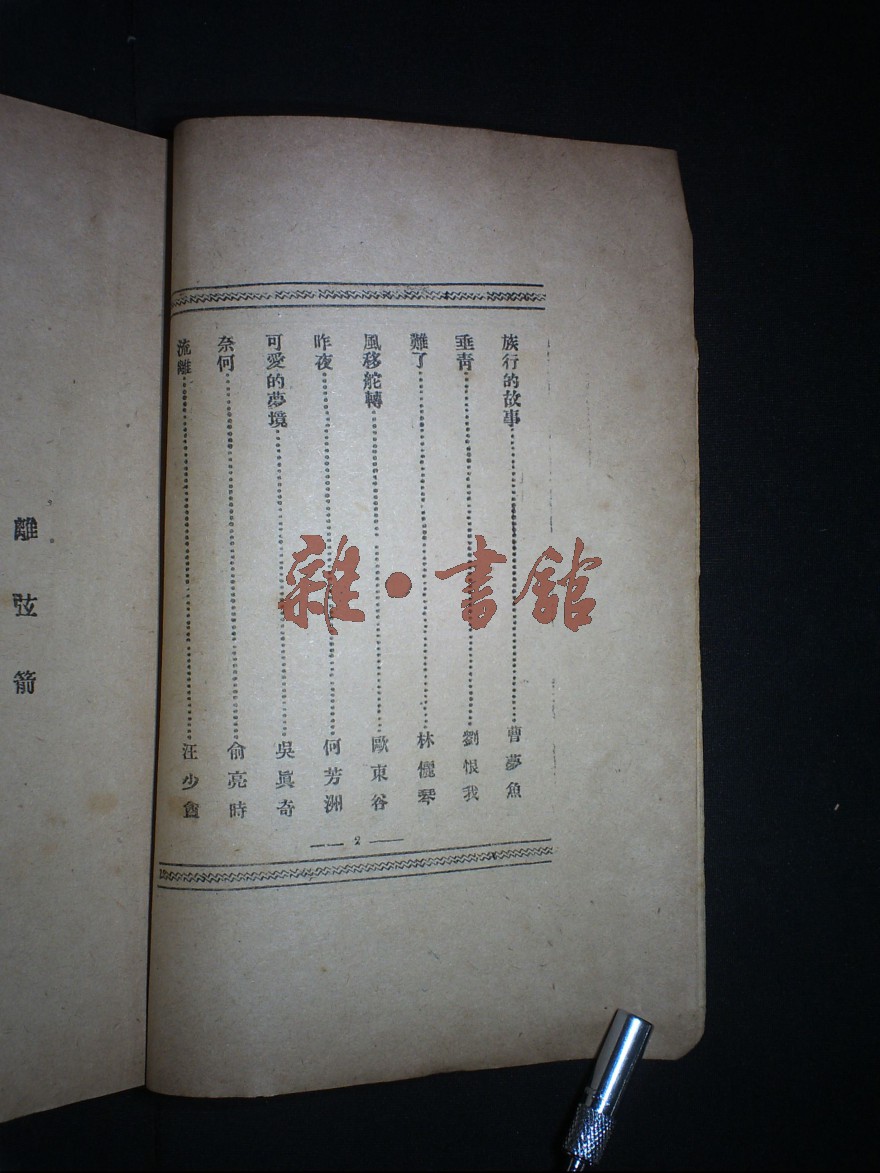 族行的故事 曹夢魚
垂青 劉恨我
難了 林儷琴
風移舵轉 歐東谷
昨夜 何芳洲
可愛的夢境 吳眞奇
奈何 俞亮時
流離 汪少
2
離弦箭
雜·書館